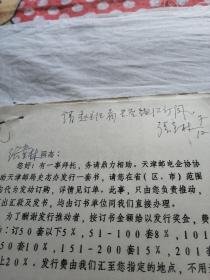 同志:
您好:有一事拜托,务请鼎力相助。天津邮电企协协
助天津邮局史志办发行一套书,请您在省(区、市)范围
内代为发动订购,详情见订单。此事,只由您负责推动,
汇出汇款及发书,均由订购单位同我们直接办理。
为了酬谢发行推动者,按订书金额给以发行奖金,费
:订50套以下5%,51-100套8%,101
50套10%,151-200套15%,201
上20%,发行费由我们汇至您指定的地点,不用